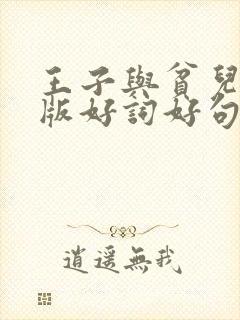 王子與貧兒
版好詞好句
逍遙無我